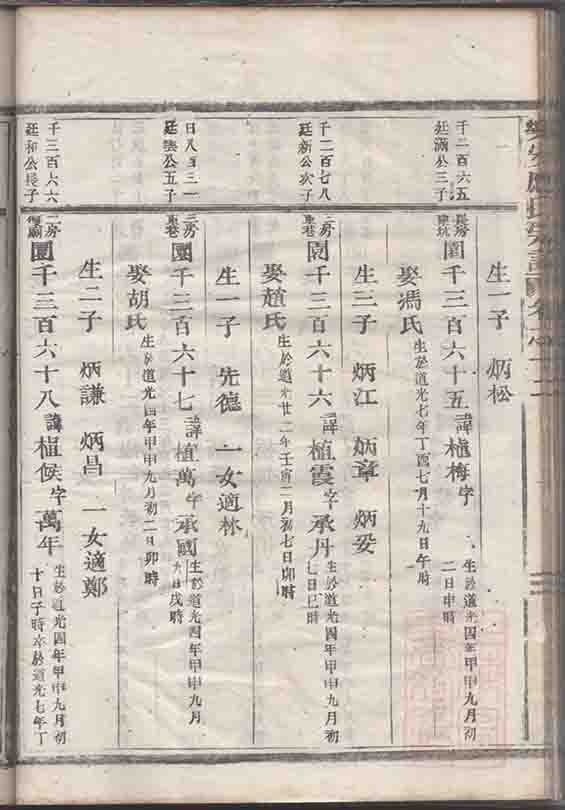 生一子 炳松
千二百六五
廷滿公三子
長房
園千三百六十五諱植梅字
生於道光四年甲申九月初
二日申時
娶馮氏
生於道光七年丁酉七月十九日午時
生三子 炳江 炳章 炳妥
千二百七八
廷新公次子
三房
東巷
園千三百六十六諱植霞字承丹
生於道光四年甲申九月初
七日巳時
娶趙氏
生於道光廿二年壬寅二月初七日卯時
生一子 先德 一女適林
廷雲公五子
三房
東巷
園千三百六十七諱植萬字承國
生於道光四年甲申九月
九日戌時
娶胡氏
生於道光四年甲申九月初二日卯時
生二子 炳謙 炳昌 一女適鄭
千三百六六
廷和公長子
二房
園千三百六十八諱植侯字萬年
生於道光四年甲申九月初
十日子時卒於道光七年丁